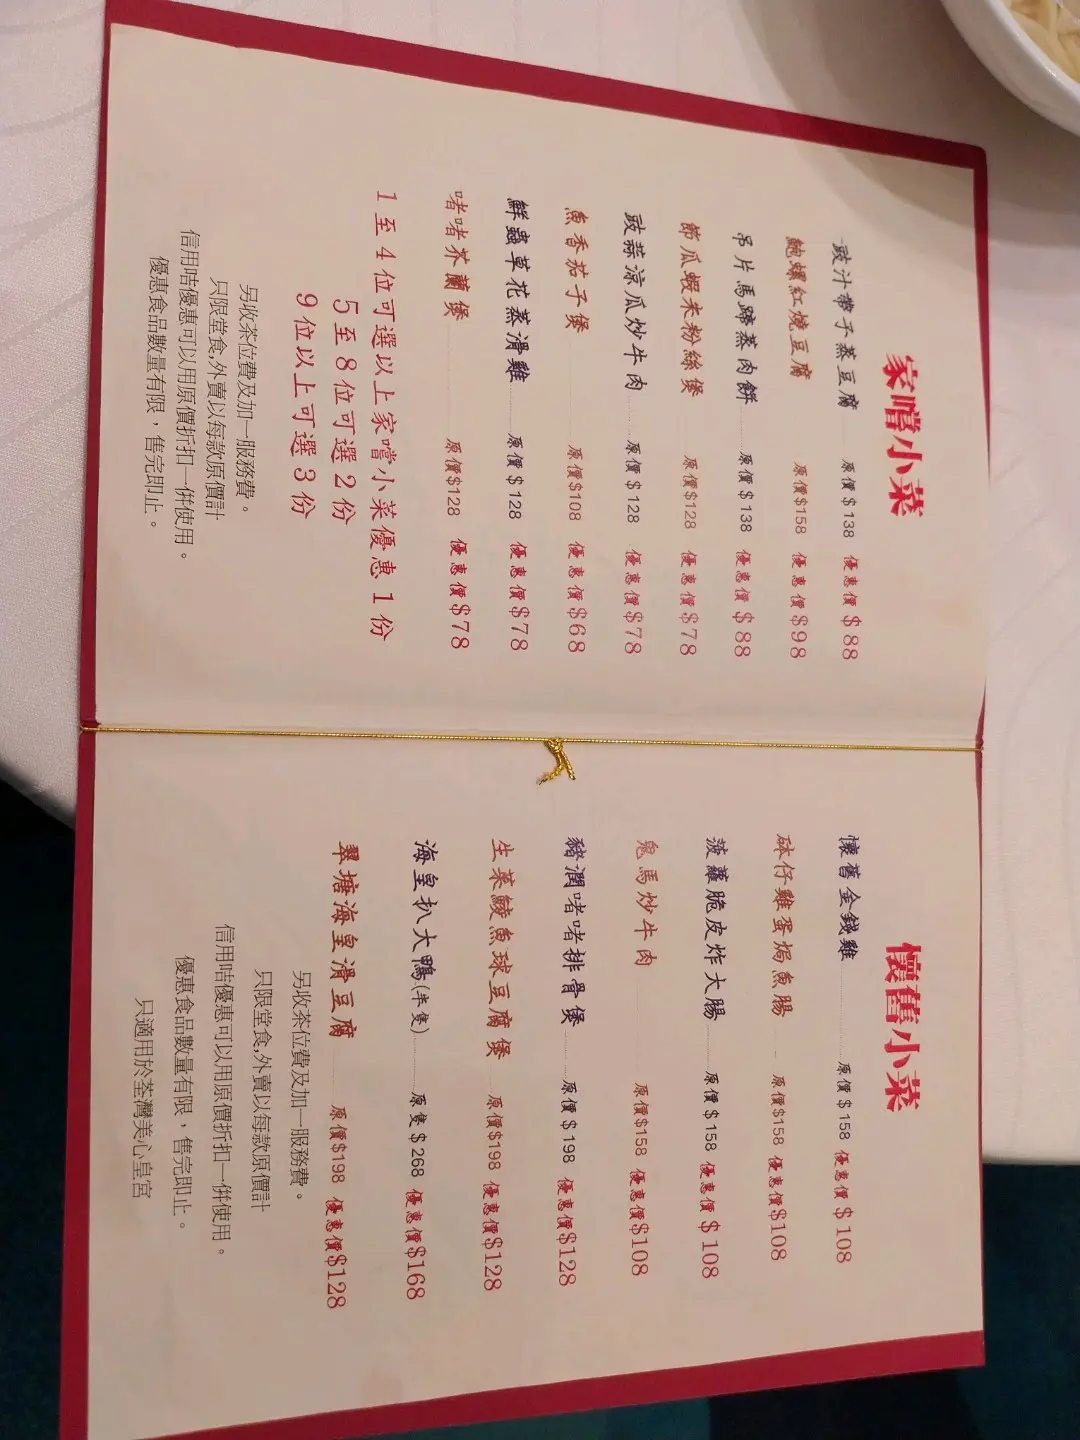 家嚐小菜
豉汁帶子蒸豆腐 原價$138 優惠價$88
鮑螺紅燒豆腐 原價$158 優惠價$98
吊片馬蹄蒸肉餅 原價$138 優惠價$88
節瓜蝦米粉絲煲 原價$128 優惠價$78
豉蒜涼瓜炒牛肉 原價$128 優惠價$78
魚香茄子煲 原價$108 優惠價$68
鮮蟲草花蒸滑雞 原價$128 優惠價$78
啫啫芥蘭煲 原價$128 優惠價$78
1至4位可選以上家嚐小菜優惠1份
5至8位可選2份
9位以上可選3份
另收茶位費及加一服務費。
只限堂食,外賣以每款原價計
信用咭優惠可以用原價折扣一併使用。
優惠食品數量有限，售完即止。
懷舊小菜
懷舊金錢雞 原價$158 優惠價$108
砵仔雞蛋焗魚腸 原價$158 優惠價$108
菠蘿脆皮炸大腸 原價$158 優惠價$108
鬼馬炒牛肉 原價$158 優惠價$108
豬潤啫啫排骨煲 原價$198 優惠價$128
生菜鯪魚球豆腐煲 原價$198 優惠價$128
海皇扒大鴨(半隻) 原隻$268 優惠價$168
翠塘海皇滑豆腐 原價$198 優惠價$128
另收茶位費及加一服務費。
只限堂食,外賣以每款原價計
信用咭優惠可以用原價折扣一併使用。
優惠食品數量有限，售完即止。
只適用於荃灣美心皇宮